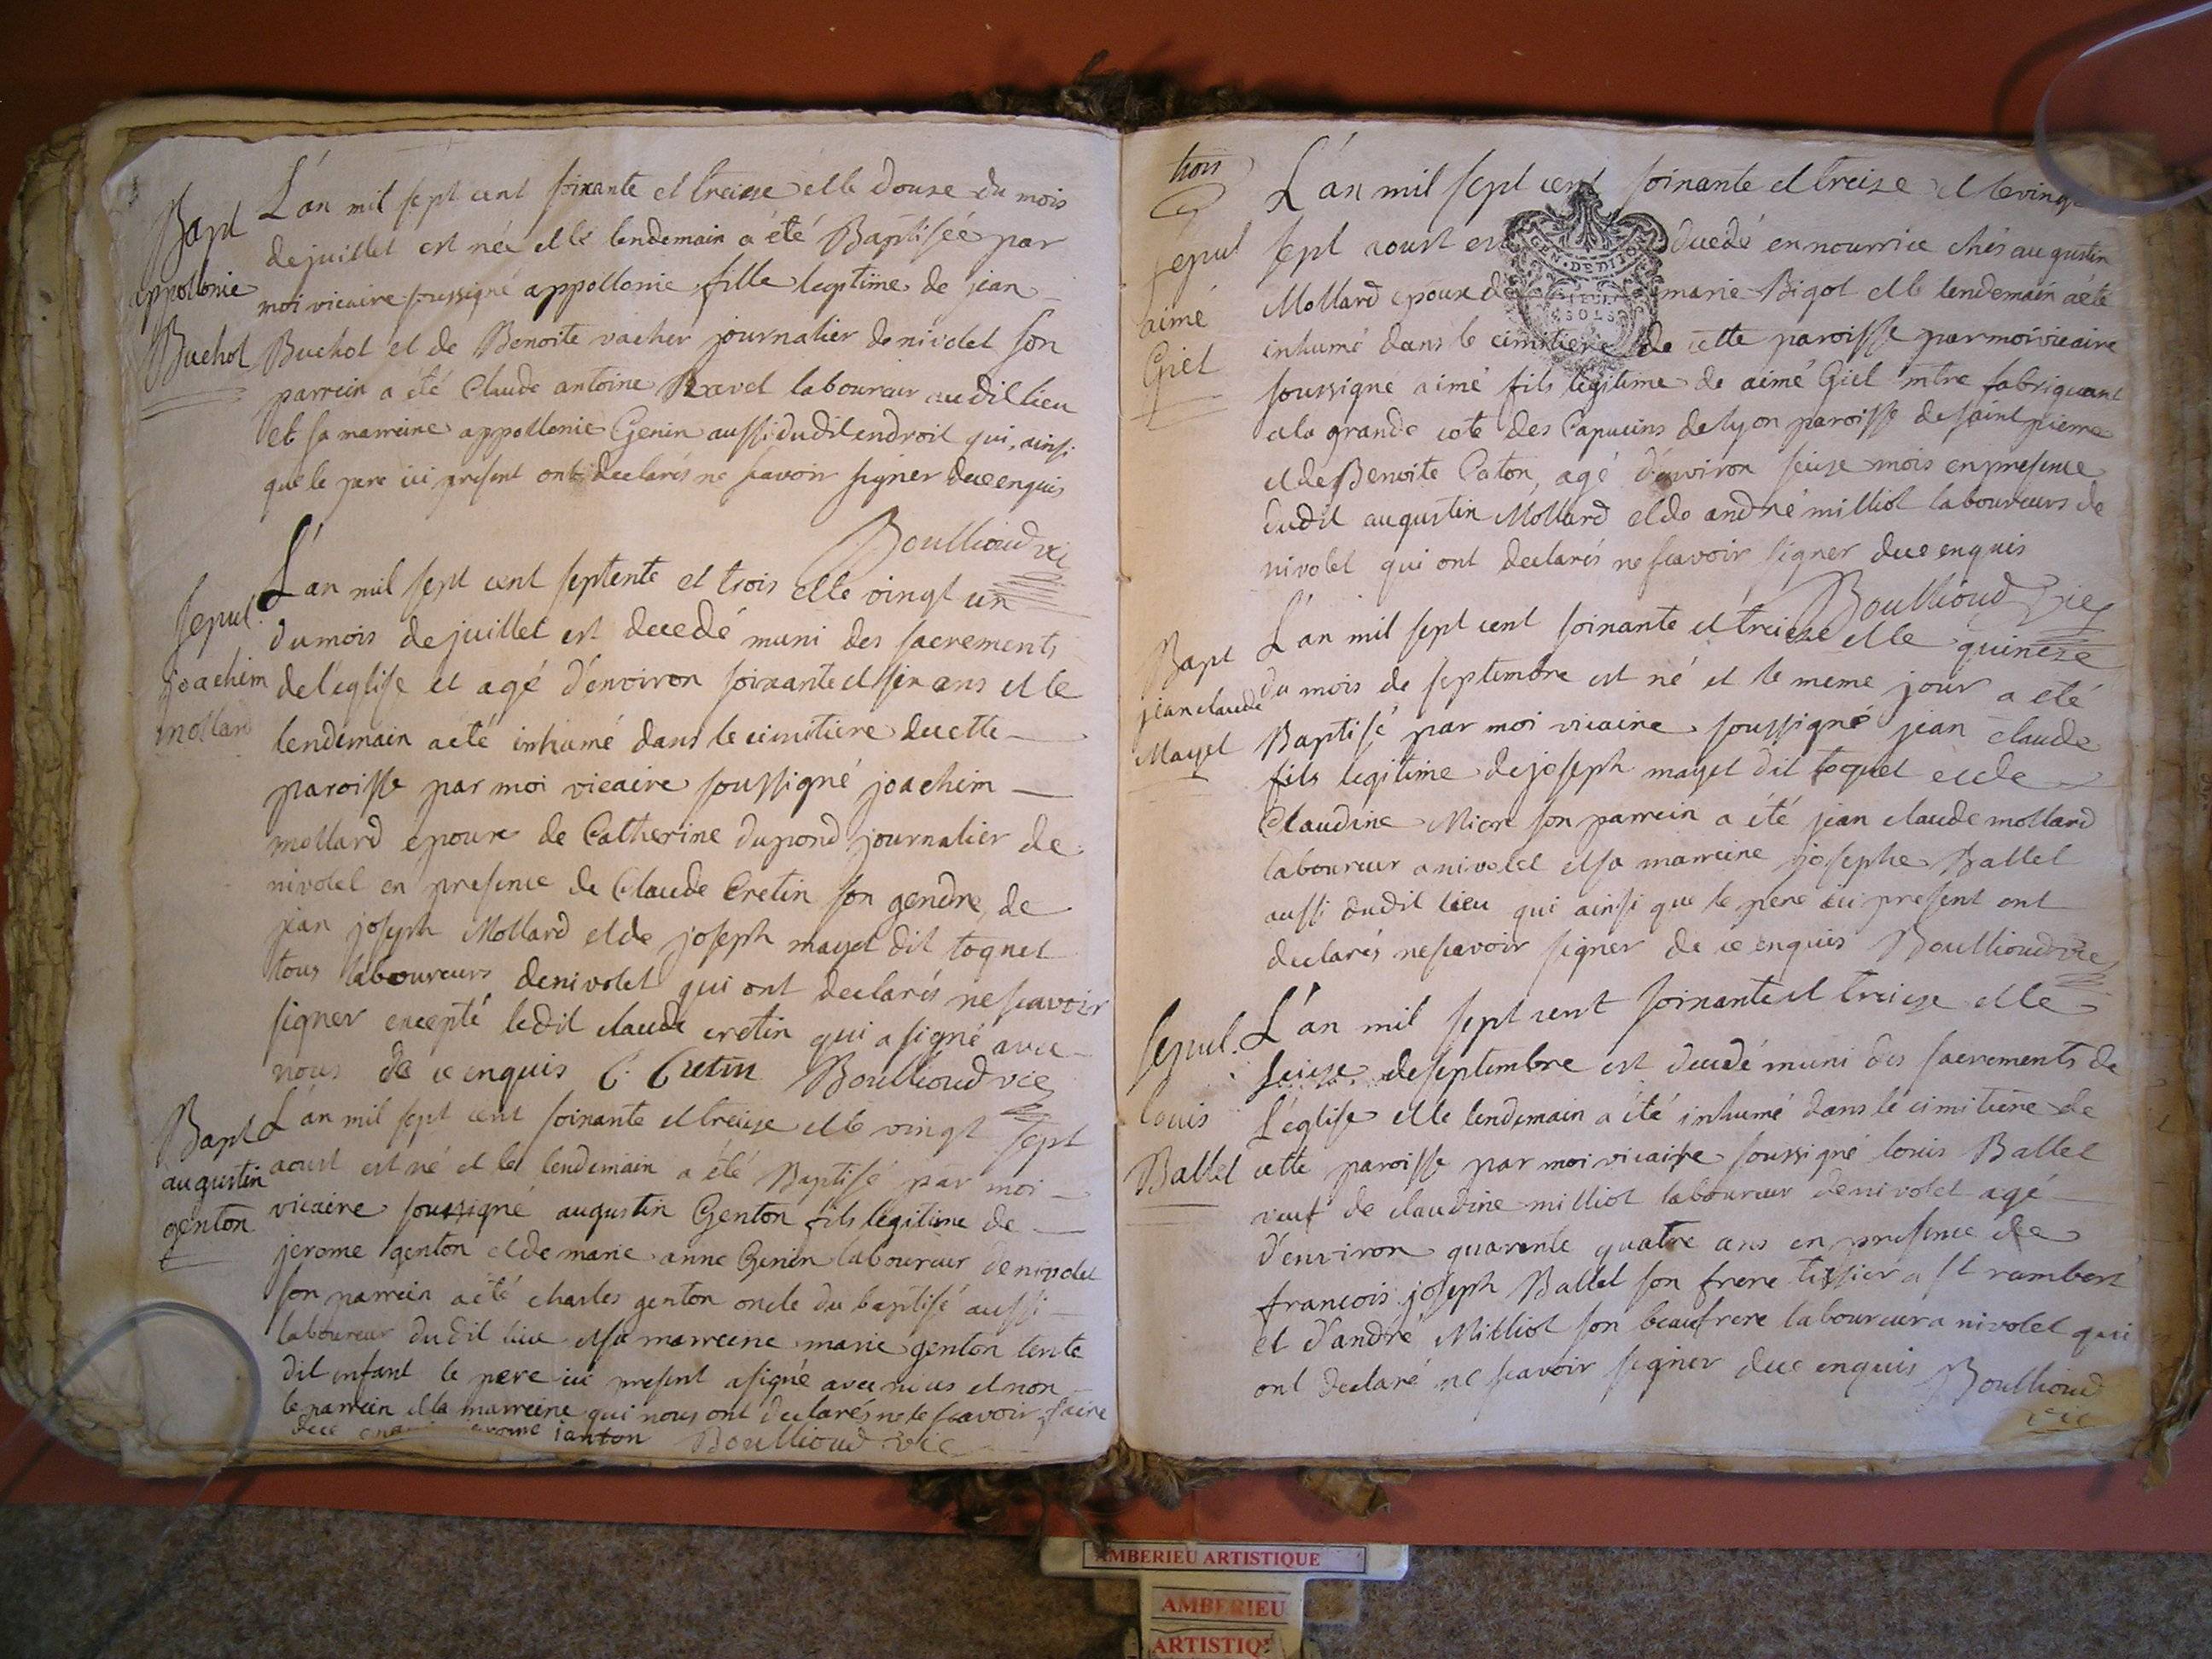 Bapt
appollonie
Buchot
L'an mil sept cent soixante et treize et le douze du mois
de juillet est née et le lendemain a été Baptisée par
moi vicaire soussigné appollonie fille legitime de jean
Buchot et de Benoite vacher journalier de nivolet son
parrein a été Claude antoine Ravet laboureur audit lieu
et sa marreine appollonie Genin aussi dudit endroit qui, ainsi
que le pere ici present ont declarés ne scavoir signer de ce enquis
Boullioud vic
Sepul.
joachim
mollard
L'an mil sept cent septente et trois et le vingt un
du mois de juillet est decedé muni des sacrements
de l'eglise et agé d'environ soixante et six ans et le
lendemain a été inhumé dans le cimitiere de cette
paroisse par moi vicaire soussigné joachim
mollard epoux de Catherine dupond journalier de
nivolet en presence de Claude Cretin son gendre, de
jean joseph Mollard et de joseph mayet dit toquet
tous laboureurs de nivolet qui ont declarés ne scavoir
signer excepté ledit claude cretin qui a signé avec
nous de ce enquis C. Cretin Boullioud vic
Bapt
augustin
genton
L'an mil sept cent soixante et treize et le vingt sept
aoust est né et le lendemain a été Baptisé par moi
vicaire soussigné augustin Genton fils legitime de
jerome genton et de marie anne Genin laboureur de nivolet
son parrein a été charles genton oncle du baptisé aussi
laboureur dudit lieu et sa marreine marie genton tente
dit enfant le pere ici present a signé avec nous et non
le parrein et la marreine qui nous ont declarés ne le scavoir faire
de ce janton Boullioud vic
trois
sepul
aimé
Giel
L'an mil sept cent soixante et treize et le vingt
sept aoust est decedé en nourrice chés augustin
Mollard epoux de marie Bigot et le lendemain a été
inhumé dans le cimitiere de cette paroisse par moi vicaire
soussigné aimé fils legitime de aimé Giel mtre fabriquant
a la grande cote des Capucins de lyon paroisse de saint pierre
et de Benoite Caton, agé d'environ seize mois en presence
dudit augustin Mollard et de andré milliot laboureurs de
nivolet qui ont declarés ne scavoir signer de ce enquis
Boullioud vic
GEN. DE DIJO
SOLS
Bapt
jean claude
Mayet
L'an mil sept cent soixante et treize et le quinze
du mois de septembre est né et le meme jour a été
Baptisé par moi vicaire soussigné jean claude
fils legitime de joseph mayet dit toquet et de
Claudine son parrein a été jean claude mollard
laboureur a nivolet et sa marreine josephe Ballet
aussi dudit lieu qui ainsi que le pere ici present ont
declarés ne scavoir signer de ce enquis Boullioud vic
sepul.
louis
Ballet
L'an mil sept cent soixante et treize et le
seize de septembre est decedé muni des sacrements de
l'eglise et le lendemain a été inhumé dans le cimitiere de
cette paroisse par moi vicaire soussigné louis Ballet
veuf de claudine milliot laboureur de nivolet agé
d'environ quarente quatre ans en presence de
francois joseph Ballet son frere tissier a st rambert
et d'andré Milliot son beaufrere laboureur a nivolet qui
ont declaré ne scavoir signer de ce enquis Boullioud
vic
AMBERIEU ARTISTIQUE
AMBERIEU
ARTISTIQ